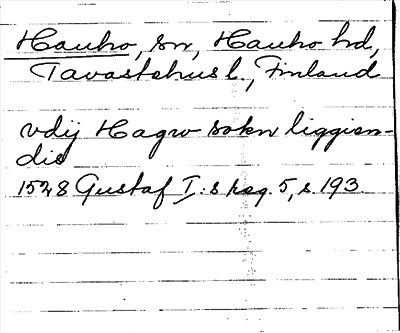 Hauho, sn, Hauho hd,
Tavastehus l., Finland
vdij Hagw sokn liggien-
dis
1528 Gustaf I:s reg. 5, s. 193